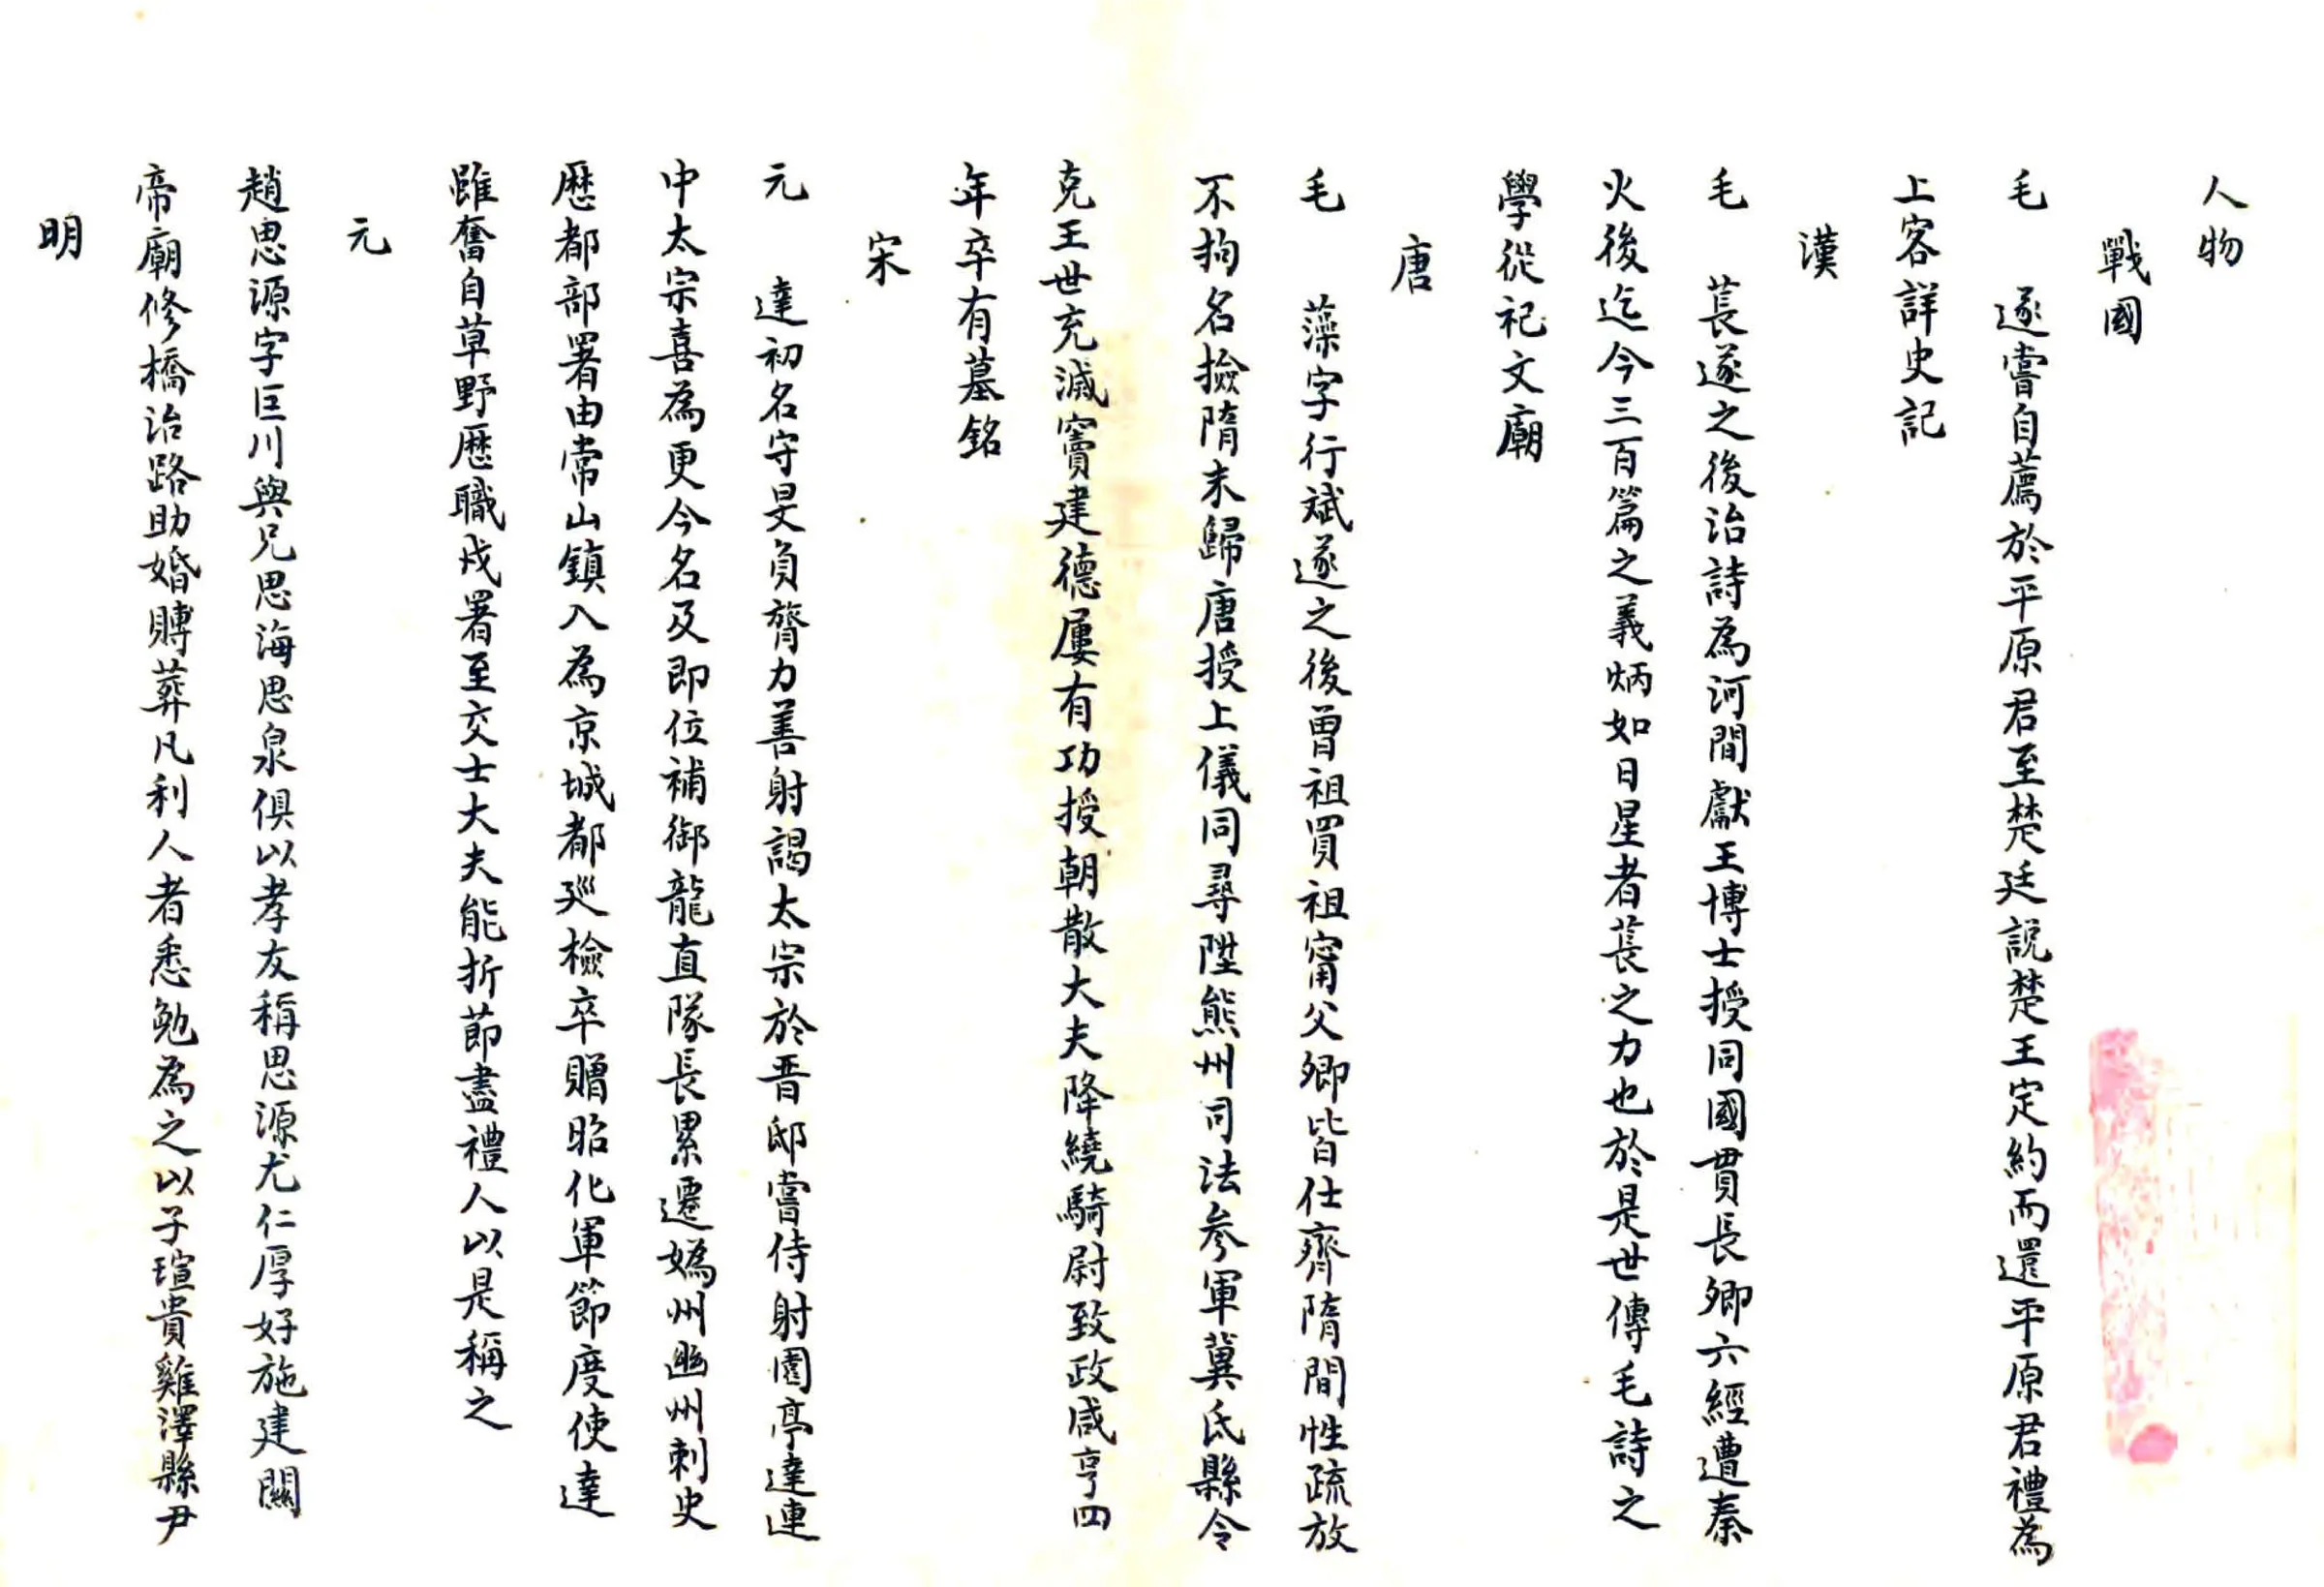 人物
戰國
毛　遂嘗自薦於平原君至楚廷說楚王定約而還平原君禮為
上客詳史記
漢
毛　萇遂之後治詩為河間獻王博士授同國貫長卿六經遭秦
火後迄今三百篇之義炳如日星者萇之力也於是世傳毛詩之
學從祀文廟
唐
毛　藻字行斌遂之後曾祖買祖甯父卿皆仕齊隋間性疏放
不拘名撿隋末歸唐授上儀同尋陞熊州司法参軍冀氏縣令
克王世充滅竇建德屢有功授朝散大夫降繞騎尉致政咸亨四
年卒有墓銘
宋
元　達初名守旻負膂力善射謁太宗於晋邸嘗侍射園亭達連
中太宗喜為更今名及即位補御龍直隊長累遷嬀州幽州刺史
歷都部署由常山鎮入為京城都巡檢卒贈昭化軍節度使達
雖奮自草野歷職戎署至交士大夫能折節盡禮人以是稱之
元
趙思源字巨川與兄思海思泉俱以孝友稱思源尤仁厚好施建關
帝廟修橋治路助婚賻葬凡利人者悉勉為之以子瑄貴雞澤縣尹
明